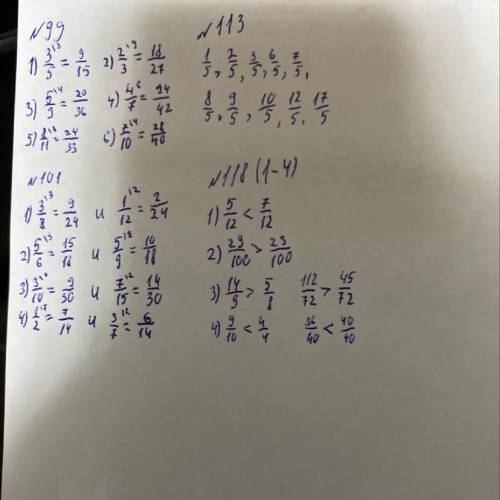 №99
1) 3/5 \3 = 9/15 2) 2/3 \9 = 18/27
3) 5/9 \4 = 20/36 4) 4/7 \6 = 24/42
5) 8/11 \3 = 24/33 6) 7/10 \4 = 28/40
№113
1/5, 2/5, 3/5, 6/5, 7/5,
8/5, 9/5, 10/5, 12/5, 17/5
№101
1) 3/8 \3 = 9/24 и 1/12 \2 = 2/24
2) 5/6 \3 = 15/18 и 5/9 \2 = 10/18
3) 3/10 \3 = 9/30 и 7/15 \2 = 14/30
4) 1/2 \7 = 7/14 и 3/7 \2 = 6/14
№118 (1-4)
1) 5/12 < 7/12
2) 29/100 > 23/100
3) 14/9 > 5/8 112/72 > 45/72
4) 9/10 < 4/4 36/40 < 40/40